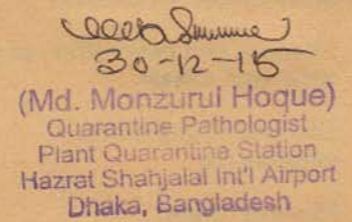 30-12-15
(Md. Monzurul Hoque)
Quarantine Pathologist
Plant Quarantine Station
Hazrat Shahjalal Int'l Airport
Dhaka, Bangladesh